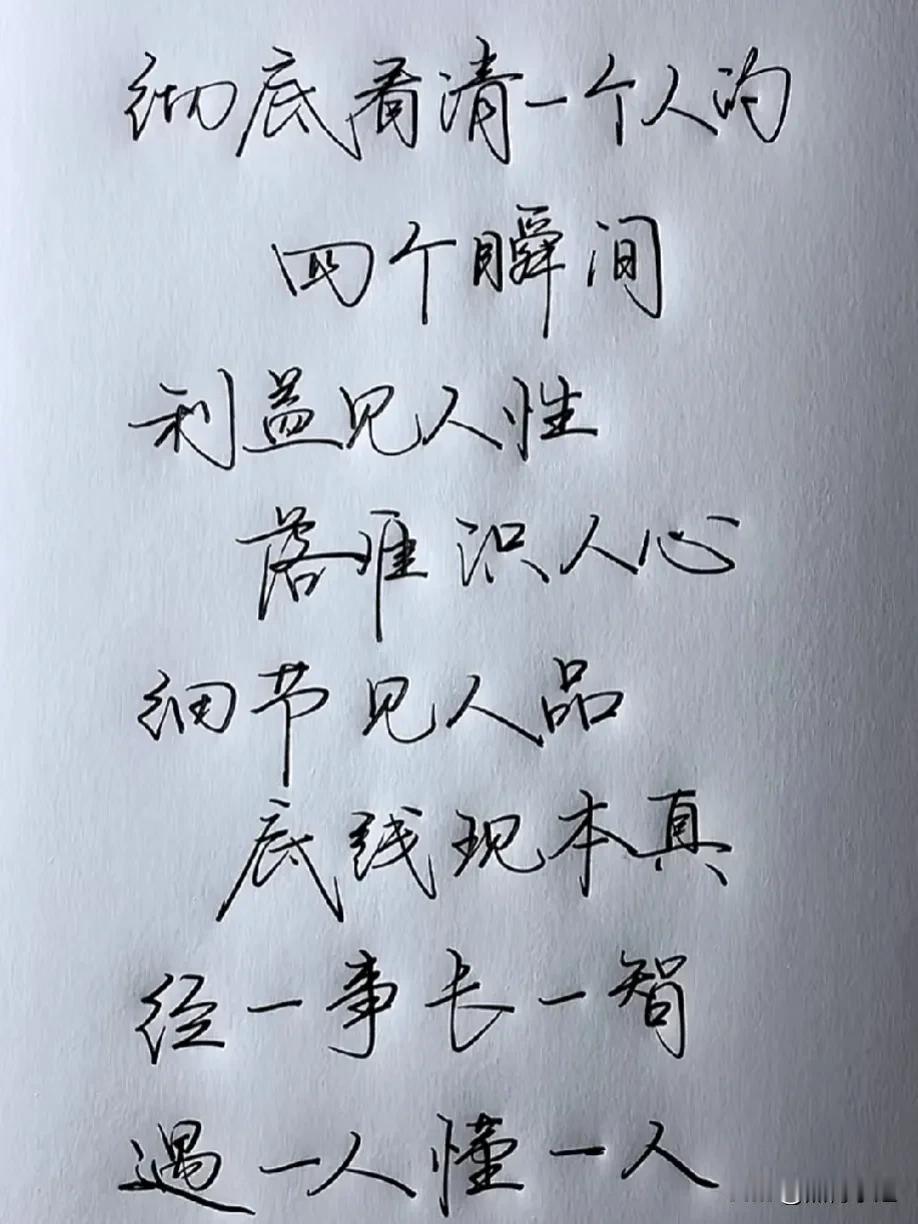 彻底看清一个人的
四个瞬间
利益见人性
落难识人心
细节见人品
底线现本真
经一事长一智
遇一人懂一人